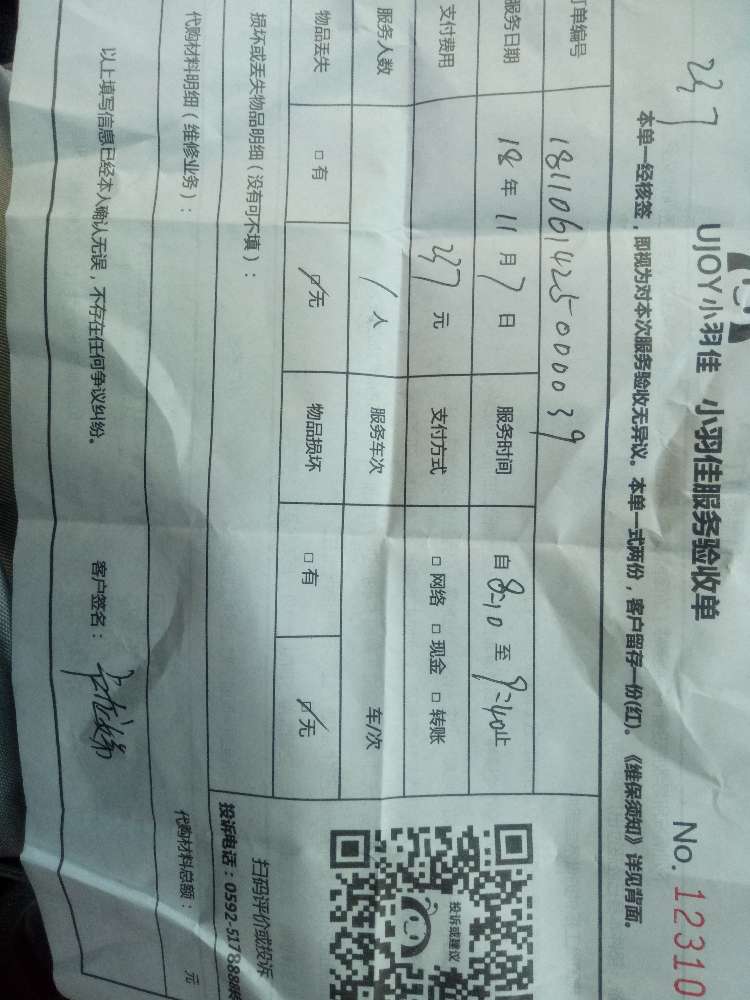 237
UJOY小羽佳 小羽佳服务验收单
No. 12310
本单一经核签，即视为对本次服务验收无异议。本单一式两份，客户留存一份(红)。《维保须知》详见背面。
订单编号 181106142500039
服务日期 18年11月7日 服务时间 自8:10至9:40止
支付费用 237元 支付方式 □网络 □现金 □转账
服务人数 1人 服务车次 车/次
物品丢失 □有 □无 物品损坏 □有 □无
损坏或丢失物品明细（没有可不填）：
代购材料明细（维修业务）：
代购材料总额： 元
以上填写信息已经本人确认无误，不存在任何争议纠纷。 客户签名：
投诉或建议
扫码评价或投诉
投诉电话：0592-5178888转